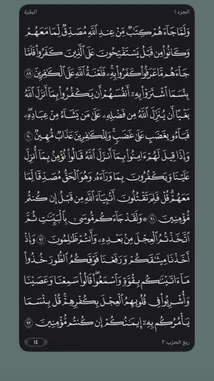 الجزء ١ البقرة
وَلَمَّا جَآءَهُمْ كِتَٰبٌ مِّنْ عِندِ ٱللَّهِ مُصَدِّقٌ لِّمَا مَعَهُمْ
وَكَانُوا۟ مِن قَبْلُ يَسْتَفْتِحُونَ عَلَى ٱلَّذِينَ كَفَرُوا۟ فَلَمَّا
جَآءَهُم مَّا عَرَفُوا۟ كَفَرُوا۟ بِهِۦ فَلَعْنَةُ ٱللَّهِ عَلَى ٱلْكَٰفِرِينَ ٨٩
بِئْسَمَا ٱشْتَرَوْا۟ بِهِۦٓ أَنفُسَهُمْ أَن يَكْفُرُوا۟ بِمَآ أَنزَلَ ٱللَّهُ
بَغْيًا أَن يُنَزِّلَ ٱللَّهُ مِن فَضْلِهِۦ عَلَىٰ مَن يَشَآءُ مِنْ عِبَادِهِۦ
فَبَآءُو بِغَضَبٍ عَلَىٰ غَضَبٍ وَلِلْكَٰفِرِينَ عَذَابٌ مُّهِينٌ ٩٠
وَإِذَا قِيلَ لَهُمْ ءَامِنُوا۟ بِمَآ أَنزَلَ ٱللَّهُ قَالُوا۟ نُؤْمِنُ بِمَآ أُنزِلَ
عَلَيْنَا وَيَكْفُرُونَ بِمَا وَرَآءَهُۥ وَهُوَ ٱلْحَقُّ مُصَدِّقًا لِّمَا
مَعَهُمْ قُلْ فَلِمَ تَقْتُلُونَ أَنۢبِيَآءَ ٱللَّهِ مِن قَبْلُ إِن كُنتُم
مُّؤْمِنِينَ ٩١ وَلَقَدْ جَآءَكُم مُّوسَىٰ بِٱلْبَيِّنَٰتِ ثُمَّ
ٱتَّخَذْتُمُ ٱلْعِجْلَ مِنۢ بَعْدِهِۦ وَأَنتُمْ ظَٰلِمُونَ ٩٢ وَإِذْ
أَخَذْنَا مِيثَٰقَكُمْ وَرَفَعْنَا فَوْقَكُمُ ٱلطُّورَ خُذُوا۟
مَآ ءَاتَيْنَٰكُم بِقُوَّةٍ وَٱسْمَعُوا۟ قَالُوا۟ سَمِعْنَا وَعَصَيْنَا
وَأُشْرِبُوا۟ فِى قُلُوبِهِمُ ٱلْعِجْلَ بِكُفْرِهِمْ قُلْ بِئْسَمَا
يَأْمُرُكُم بِهِۦٓ إِيمَٰنُكُمْ إِن كُنتُم مُّؤْمِنِينَ ٩٣
ربع الحزب ٢ ١٤